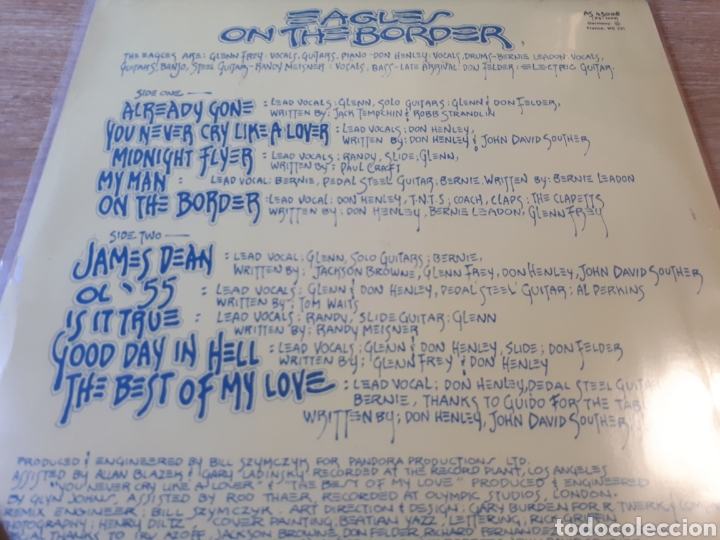 EAGLES
ON THE BORDER
AS 43005
Germany:
France: WE 331
THE EAGLES ARE: GLENN FREY: VOCALS, GUITARS, PIANO - DON HENLEY: VOCALS, DRUMS - BERNIE LEADON VOCALS,
GUITARS, BANJO, STEEL GUITAR - RANDY MEISNER: VOCALS, BASS - LATE ARRIVAL: DON FELDER: ELECTRIC GUITAR.
SIDE ONE —
ALREADY GONE : LEAD VOCALS: GLENN, SOLO GUITARS: GLENN & DON FELDER,
WRITTEN BY: JACK TEMPCHIN & ROBB STRANDLIN
YOU NEVER CRY LIKE A LOVER : LEAD VOCALS: DON HENLEY,
WRITTEN BY: DON HENLEY & JOHN DAVID SOUTHER
MIDNIGHT FLYER : LEAD VOCALS: RANDY, SLIDE: GLENN,
WRITTEN BY: PAUL CRAFT
MY MAN : LEAD VOCAL: BERNIE, PEDAL STEEL GUITAR: BERNIE. WRITTEN BY: BERNIE LEADON
ON THE BORDER : LEAD VOCAL: DON HENLEY, T.N.T.S: COACH, CLAPS: THE CLAPETTS
WRITTEN BY: DON HENLEY, BERNIE LEADON, GLENN FREY
SIDE TWO —
JAMES DEAN : LEAD VOCAL: GLENN, SOLO GUITARS: BERNIE,
WRITTEN BY: JACKSON BROWNE, GLENN FREY, DON HENLEY, JOHN DAVID SOUTHER
OL' 55 : LEAD VOCALS: GLENN & DON HENLEY, PEDAL STEEL GUITAR: AL PERKINS
WRITTEN BY: TOM WAITS
IS IT TRUE : LEAD VOCALS: RANDY, SLIDE GUITAR: GLENN
WRITTEN BY: RANDY MEISNER
GOOD DAY IN HELL : LEAD VOCALS: GLENN & DON HENLEY, SLIDE: DON FELDER
WRITTEN BY: GLENN FREY & DON HENLEY
THE BEST OF MY LOVE : LEAD VOCAL: DON HENLEY, PEDAL STEEL GUITAR
BERNIE, THANKS TO GUIDO FOR THE
WRITTEN BY: DON HENLEY, JOHN DAVID SOUTHER
PRODUCED & ENGINEERED BY BILL SZYMCZYK FOR PANDORA PRODUCTIONS LTD.
ASSISTED BY ALLAN BLAZEK & GARY LADINSKY RECORDED AT THE RECORD PLANT, LOS ANGELES
"YOU NEVER CRY LIKE A LOVER" & "THE BEST OF MY LOVE" PRODUCED & ENGINEERED
BY GLYN JOHNS, ASSISTED BY ROD THAER RECORDED AT OLYMPIC STUDIOS, LONDON.
REMIX ENGINEER: BILL SZYMCZYK. ART DIRECTION & DESIGN: GARY BURDEN FOR R. TWERK &
PHOTOGRAPHY: HENRY DILTZ, COVER PAINTING, BEATIAN YAZZ, LETTERING, RICK GRIFFIN
THANKS TO IRV AZOFF, JACKSON BROWNE, DON FELDER RICHARD FERNANDEZ
todocoleccion